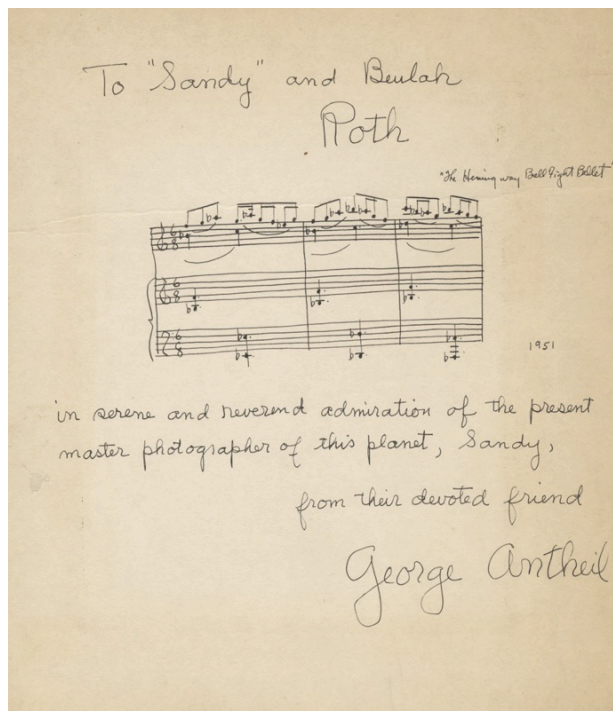 To "Sandy" and Beulah
Roth
"The Hemingway Bull Fight Ballet"
6
8
6
8
6
8
1951
in serene and reverend admiration of the present
master photographer of this planet, Sandy,
from their devoted friend
George Antheil